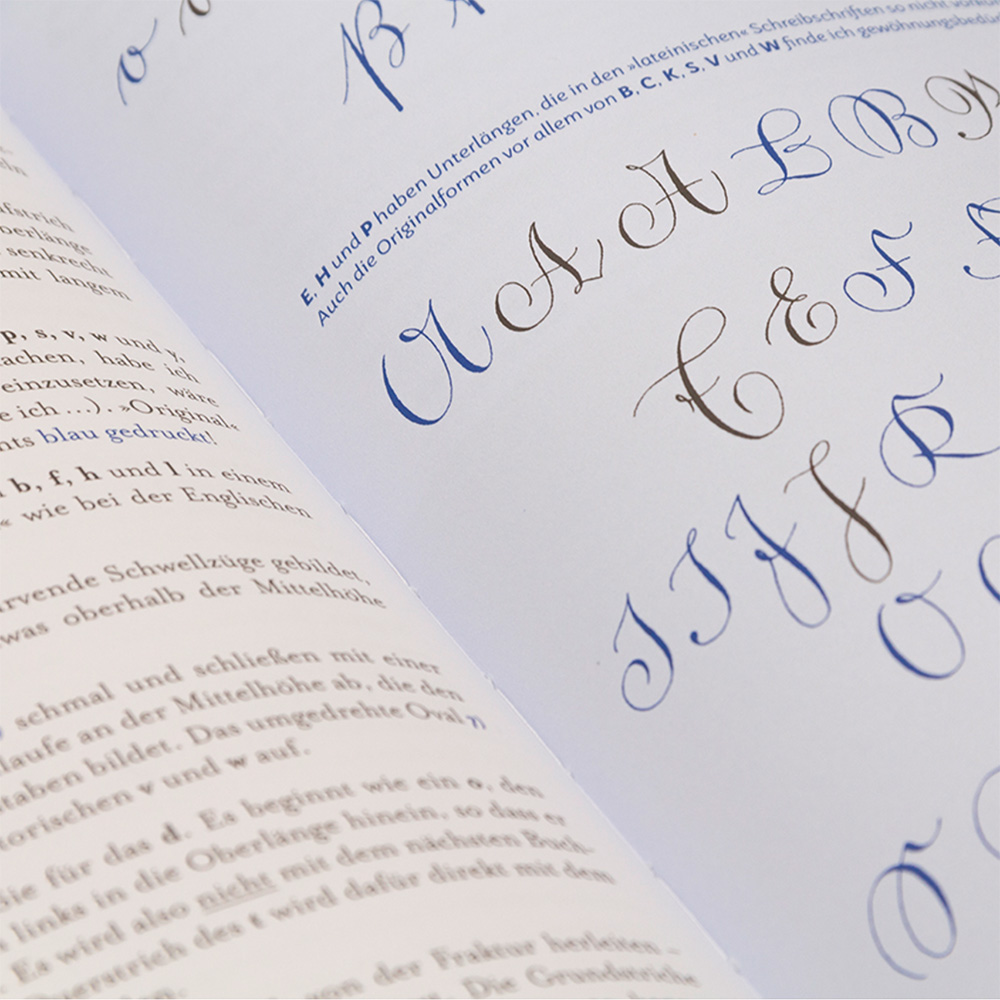 fstrich
berlänge
senkrecht
mit langem
p, s, v, w und y,
achen, habe ich
einzusetzen, wäre
e ich …). »Original«
nts blau gedruckt!
b, f, h und l in einem
« wie bei der Englischen
rvende Schwellzüge gebildet,
was oberhalb der Mittelhöhe
schmal und schließen mit einer
laufe an der Mittelhöhe ab, die den
taben bildet. Das umgedrehte Oval
torischen v und w auf.
Sie für das d. Es beginnt wie ein o, den
links in die Oberlänge hinein, so dass er
Es wird also nicht mit dem nächsten Buch-
Querstrich des t wird dafür direkt mit dem
von der Fraktur herleiten –
Die Grundstriche
v
B
E, H und P haben Unterlängen, die in den »lateinischen« Schreibschriften so nicht
Auch die Originalformen vor allem von B, C, K, S, V und W finde ich gewöhnungsbedü
A A A B B
C E F
I I J J K
O